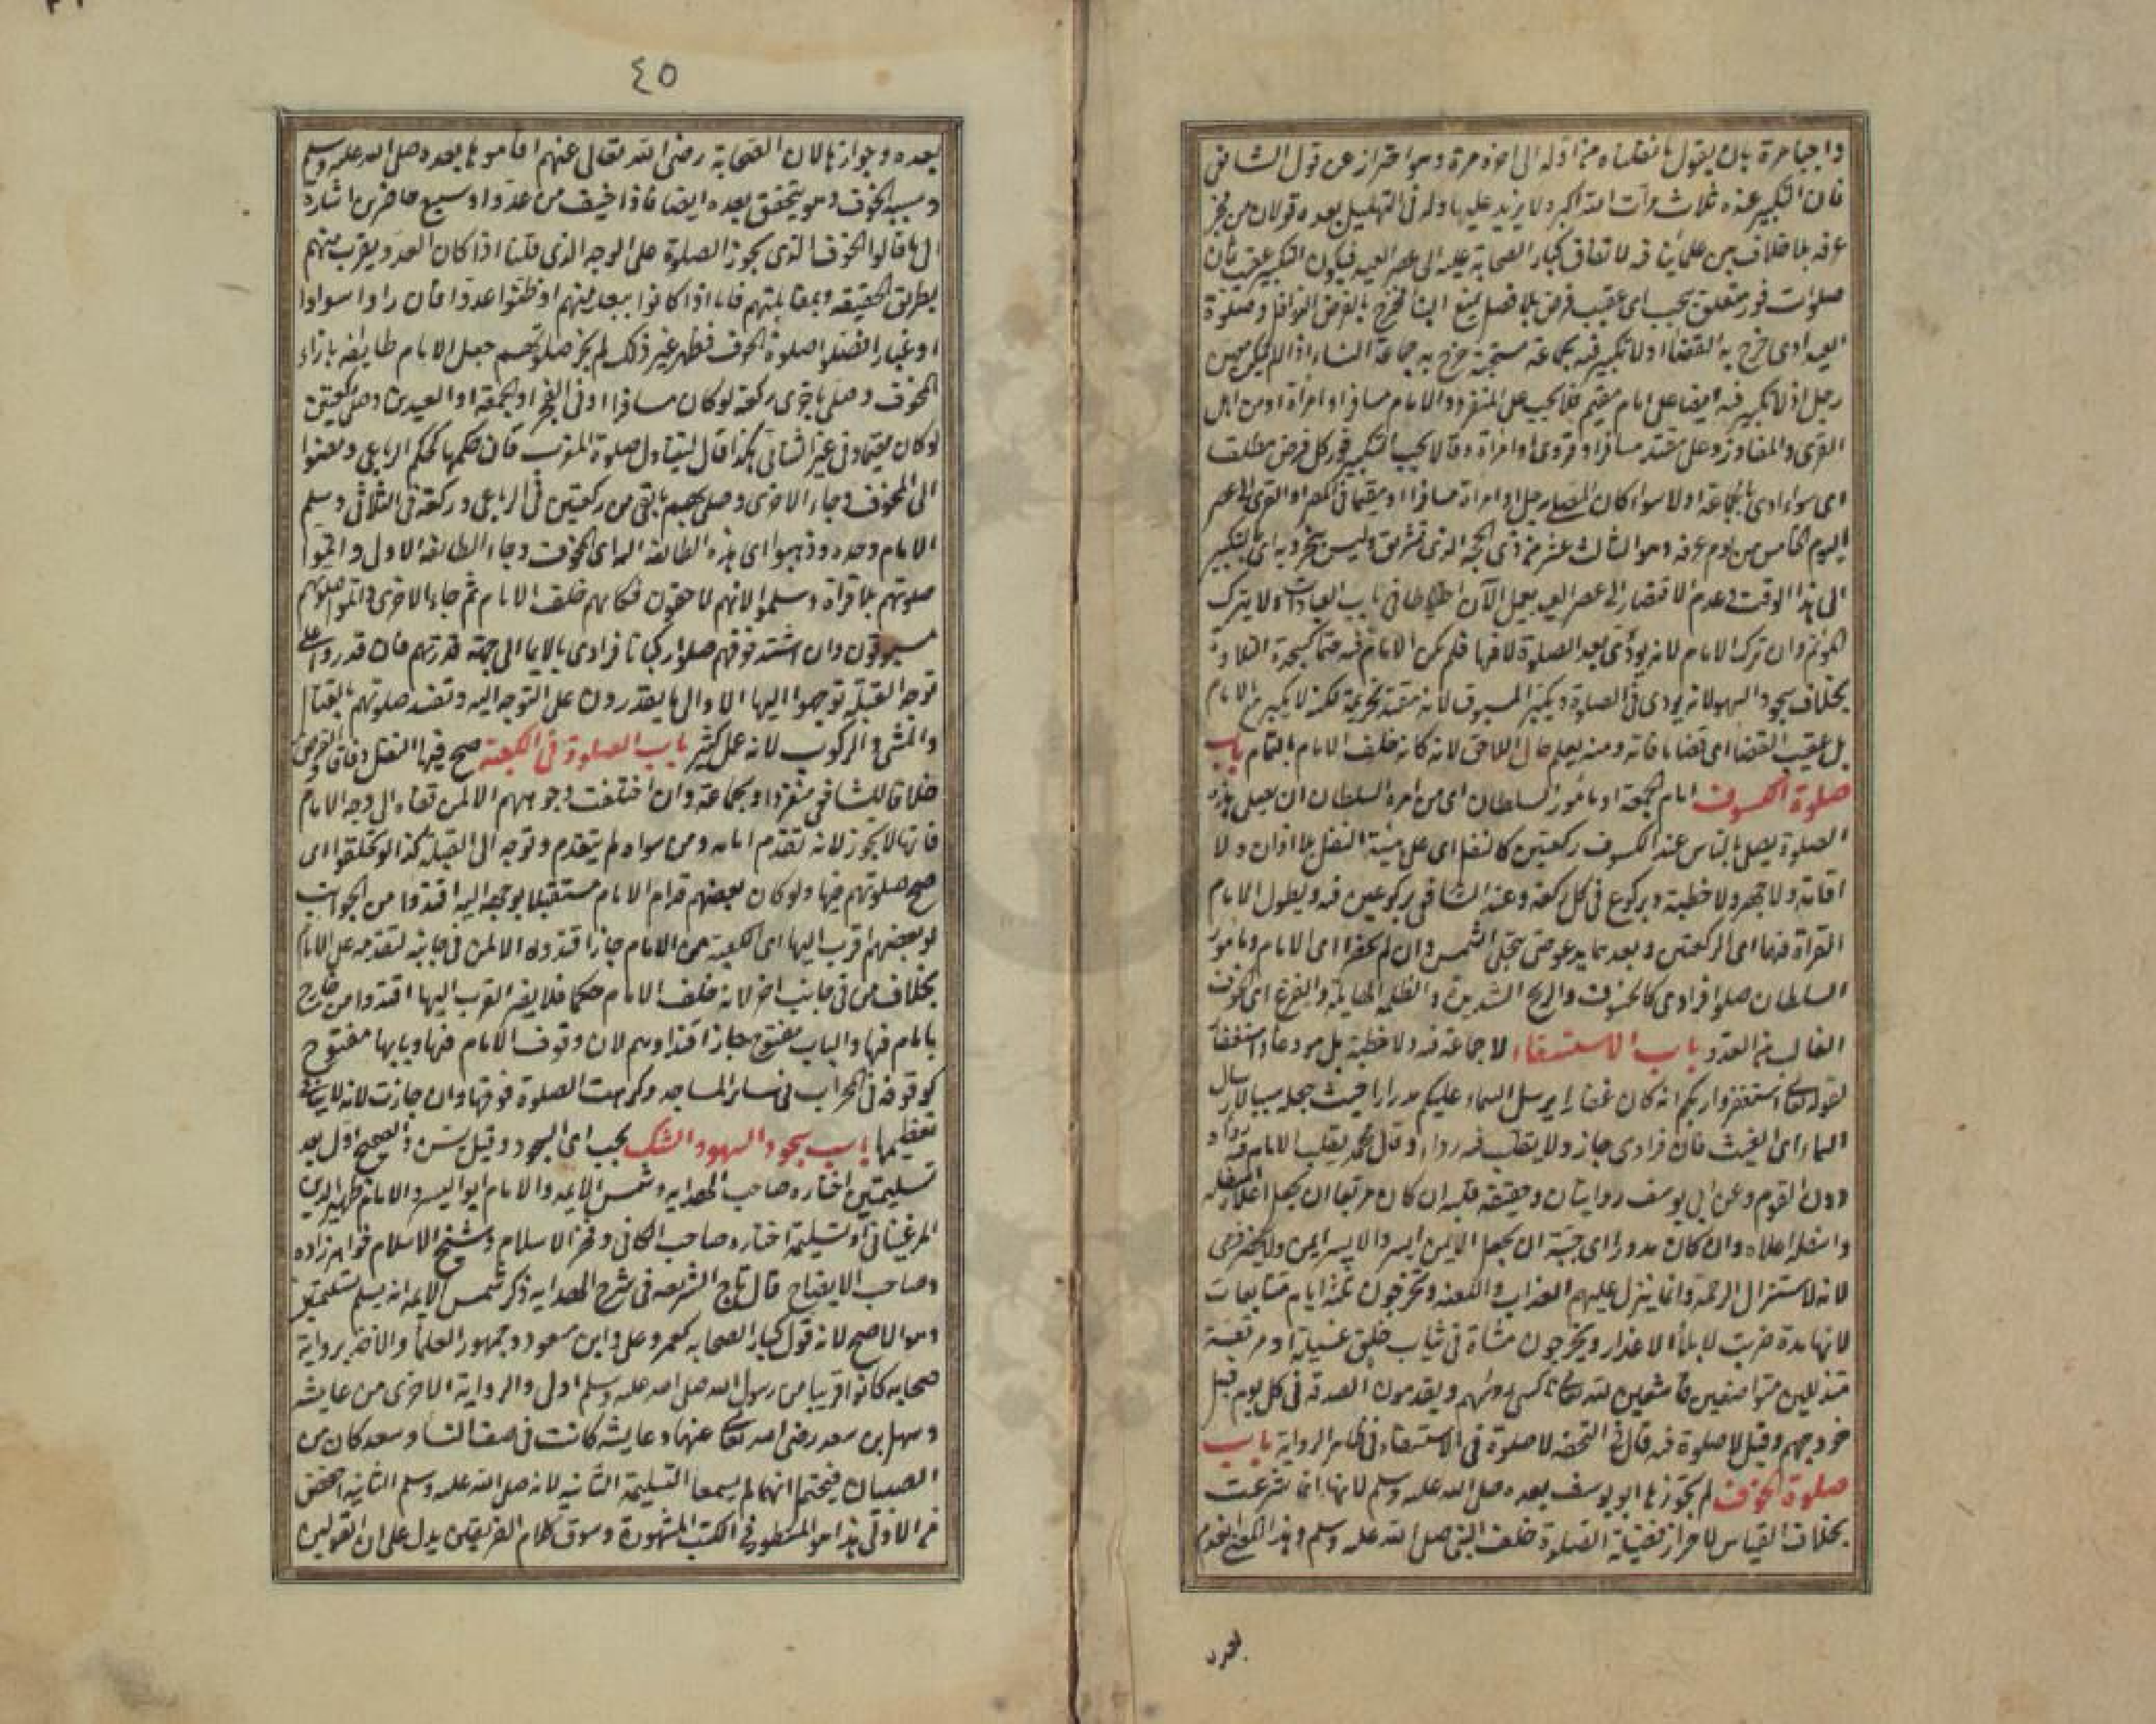 واجبا مرة بان يقول ما نقلناه من اوله الى اخره مرة وهو احتراز عن قول الشافعي
فان التكبير عنده ثلاث مرات الله اكبر ولا يزيد عليها وله في التهليل بعده قولان من فجر
عرفه بلا خلاف بين علمائنا فيه لاتفاق كبار الصحابة عليه الى عصر العيد فيكون التكبير عقيب ثمان
صلوات فور متعلق بيجب اى عقيب فرض بلا فصل يمنع البناء فخرج بالفرض النوافل وصلوة
العيد ادى خرج به القضاء اذ لا تكبير فيه بجماعة مستحبة خرج به جماعة النساء اذا لم يكن معهن
رجل اذ لا تكبير فيه ايضا على امام مقيم فلا يجب على المنفرد والامام مسافرا او امرأة او من اهل
القرى والمفاوز وعلى مقتد مسافر او قروى او امرأة وقالا يجب التكبير فور كل فرض مطلقا
اى سواء ادى بالجماعة اولا سواء كان المصلى رجلا او امرأة مسافرا او مقيما في المصر او القرى الى عصر
اليوم الخامس من يوم عرفه وهو الثالث عشر من ذى الحجة الذى تشريق وليس بنحر وبه اى بالتكبير
الى هذا الوقت وعدم الاقتصار الى عصر العيد يعمل الآن احتياطا في باب العبادات ولا يترك
المؤتم وان ترك الامام لانه يؤدى بعد الصلوة لا فيها فلم يكن الامام فيه حتما كسجدة التلاوة
بخلاف سجود السهو لانه يودى في الصلوة ويكبر المسبوق لانه مقتد تحريمة لكنه لا يكبر مع الامام
بل عقيب القضاء اى قضاء ما فاته ومنه يعلم حال اللاحق لانه كانه خلف الامام بالتمام باب
صلوة الكسوف امام الجمعة او مأمور السلطان اى من امره السلطان ان يصلى هذه
الصلوة يصلى بالناس عند الكسوف ركعتين كالنفل اى على هيئة النفل بلا اذان ولا
اقامة ولا جهر ولا خطبة وبركوع في كل ركعة وعند الشافعى بركوعين فيه ويطول الامام
القرأة فيهما اى الركعتين وبعدهما يدعو حتى تنجلى الشمس وان لم يحضر اى الامام ومأمور
السلطان صلوا فرادى كالخسوف والريح الشديدة والظلمة الهايلة والفزع اى الخوف
الغالب من العدو باب الاستسقاء لا جماعة فيه ولا خطبة بل هو دعاء واستغفار
لقوله تعالى استغفروا ربكم انه كان غفارا يرسل السماء عليكم مدرارا حيث جعله سببا لارسال
السماء اى الغيث فان فرادى جاز ولا يقلب فيه رداء وقال محمد يقلب الامام فيه رداءه
دون القوم وعن ابى يوسف روايتان وحقيقة قلبه ان كان مربعا ان يجعل اعلاه اسفله
واسفله اعلاه وان كان مدورا اى جبة ان يجعل الايمن ايسر والايسر ايمن ولا يحضر ذمى
لانه لاستنزال الرحمة وانما ينزل عليهم العذاب واللعنة ويخرجون ثلثة ايام متتابعات
لانها مدة ضربت لابلاء الاعذار ويخرجون مشاة في ثياب خلق غسيلة او مرقعة
متذللين متواضعين خاشعين لله تعالى ناكسى رؤسهم ويقدمون الصدقة في كل يوم قبل
خروجهم وقيل لا صلوة فيه قال في التحفة لا صلوة في الاستسقاء في ظاهر الرواية باب
صلوة الخوف لم يجوزها ابو يوسف بعده صلى الله عليه وسلم لانها انما شرعت
بخلاف القياس لاحراز فضيلة الصلوة خلف النبى صلى الله عليه وسلم وهذا المعنى انعدم
بعده
٤٥
بعده وجوازها لان الصحابة رضى الله تعالى عنهم اقاموها بعده صلى الله عليه وسلم
وسببه الخوف وهو يتحقق بعده ايضا فاذا خيف من عدو او سبع حاضرين اشارة
الى ما قالوا الخوف الذى يجوز الصلوة على الوجه الذى قلنا اذا كان العدو بقرب منهم
بطريق الحقيقة وبمقابلتهم فاما اذا كانوا ببعد منهم او ظنوا عدوا فان راوا سوادا
او غبارا فصلوا صلوة الخوف فظهر غير ذلك لم يجز صلوتهم جعل الامام طايفة بازاء
المخوف وصلى باخرى ركعة لو كان مسافرا او في الفجر او الجمعة او العيدين وصلى ركعتين
لو كان مقيما وفي غير الثنائى هكذا قال ليتناول صلوة المغرب فان حكمها كحكم الرباعى ومضوا
الى المخوف وجاء الاخرى وصلى بهم ما بقى من ركعتين في الرباعى وركعة في الثلاثى وسلم
الامام وحده وذهبوا اى هذه الطائفة اليه اى المخوف وجاء الطائفة الاولى واتموا
صلوتهم بلا قرأة وسلموا لانهم لاحقون فكانهم خلف الامام ثم جاء الاخرى واتموا صلوتهم
مسبوقون وان اشتد خوفهم صلوا ركبانا فرادى بالايماء الى جهة قدرتهم فان قدروا على
توجه القبلة توجهوا اليها الا والى ما يقدرون على التوجه اليه وتفسد صلوتهم بالقتال
والمشى والركوب لانه عمل كثير باب الصلوة في الكعبة صح فيها النفل وفاقا والفرض
خلافا للشافعى منفردا وبجماعة وان اختلفت وجوههم الا لمن قفاه الى وجه الامام
فانها لا يجوز لانه تقدم امامه ومن سواه لم يتقدم وتوجه الى القبلة كذا لو تحلقوا اى
صح صلوتهم فيها ولو كان بعضهم قدام الامام مستقبلا بوجهه اليه اقتدوا من الجوانب
لو بعضهم اقرب اليها اى الكعبة من الامام جاز اقتدوه الا لمن في جانبه لتقدمه على الامام
بخلاف من في جانب اخر لانه خلف الامام حكما فلا يضر القرب اليها اقتدوا من خارج
بامام فيها والباب مفتوح جاز اقتداؤهم لان وقوف الامام فيها وبابها مفتوح
كوقوفه في المحراب في سائر المساجد وكرهت الصلوة فوقها وان جازت لانه لا ينافى
تعظيمها باب سجود السهو والشك يجب اى السجود وقيل يسن والصحيح الاول بعد
تسليمتين اختاره صاحب الهدايه وشمس الايمه والامام ابو اليسر والامام ظهير الدين
المرغينانى او تسليمة اختاره صاحب الكافى وفخر الاسلام وشيخ الاسلام خواهر زاده
وصاحب الايضاح قال تاج الشريعه في شرح الهدايه ذكر شمس الايمه انه يسلم تسليمتين
وهو الاصح لانه قول كبار الصحابه كعمر وعلى وابن مسعود وجمهور العلماء والاخذ برواية
صحابه كانوا قريبا من رسول الله صلى الله عليه وسلم اولى والرواية الاخرى من عايشه
وسهل بن سعد رضى الله تعالى عنهما وعايشه كانت في صف النساء وسعد كان من
الصبيان فيحتمل انهما لم يسمعا التسليمة الثانيه لانه صلى الله عليه وسلم الثانيه اخفض
من الاولى هذا هو المسطور في الكتب المشهورة وسوق كلام الفريقين يدل على ان القولين